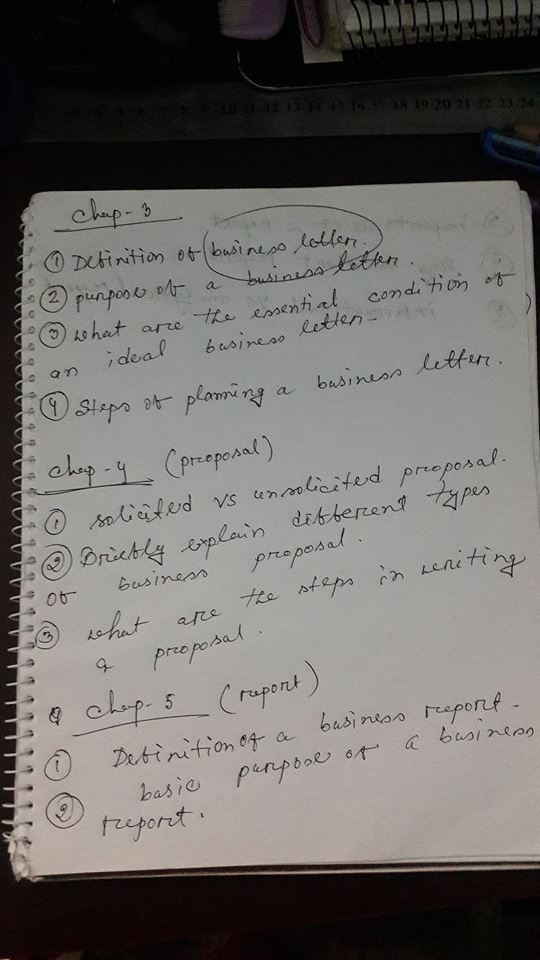 Chap-3
① Definition of business letter.
② purpose of a business letter.
③ what are the essential condition of
an ideal business letter-
④ Steps of planning a business letter.
Chap-4 (proposal)
① solicited vs unsolicited proposal.
② Briefly explain different types
of business proposal.
③ what are the steps in writing
a proposal.
Chap-5 (report)
① Definition of a business report-
② basic purpose of a business
report.
6 7 8 9 10 11 12 13 14 15 16 17 18 19 20 21 22 23 24